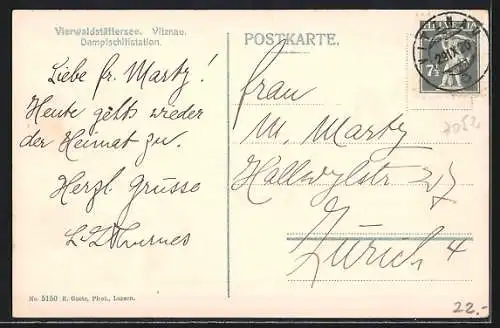 Vierwaldstättersee. Vitznau.
Dampfschiffstation.
POSTKARTE.
HELVETIA
7½
VITZNAU
29.IX.
Liebe fr. Marty!
Heute gehts wieder
der Heimat zu.
Herzl. Grüsse
Frau
M. Marty
Hallwylstr 27
Zürich 4
No. 5150 E. Goetz, Phot., Luzern.
22.-